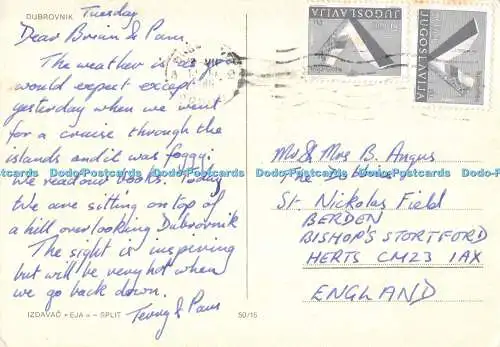 DUBROVNIK
Tuesday
Dear Brian & Pam,
The weather is as you
would expect except
yesterday when we went
for a cruise through the
islands and it was foggy.
We read our books. Today
We are sitting on top of
a hill overlooking Dubrovnik
The sight is inspiring
but will be very hot when
we go back down.
Terry & Pam
IZDAVAČ »EJA« – SPLIT
50/15
JUGOSLAVIJA
JUGOSLAVIJA
Mr & Mrs B. Angus
The
St. Nickolas Field
BERDEN
BISHOP'S STORTFORD
HERTS CM23 1AX
ENGLAND
Dodo-Postcards Dodo-Postcards Dodo-Postcards Dodo-Postcards Dodo-Postcards